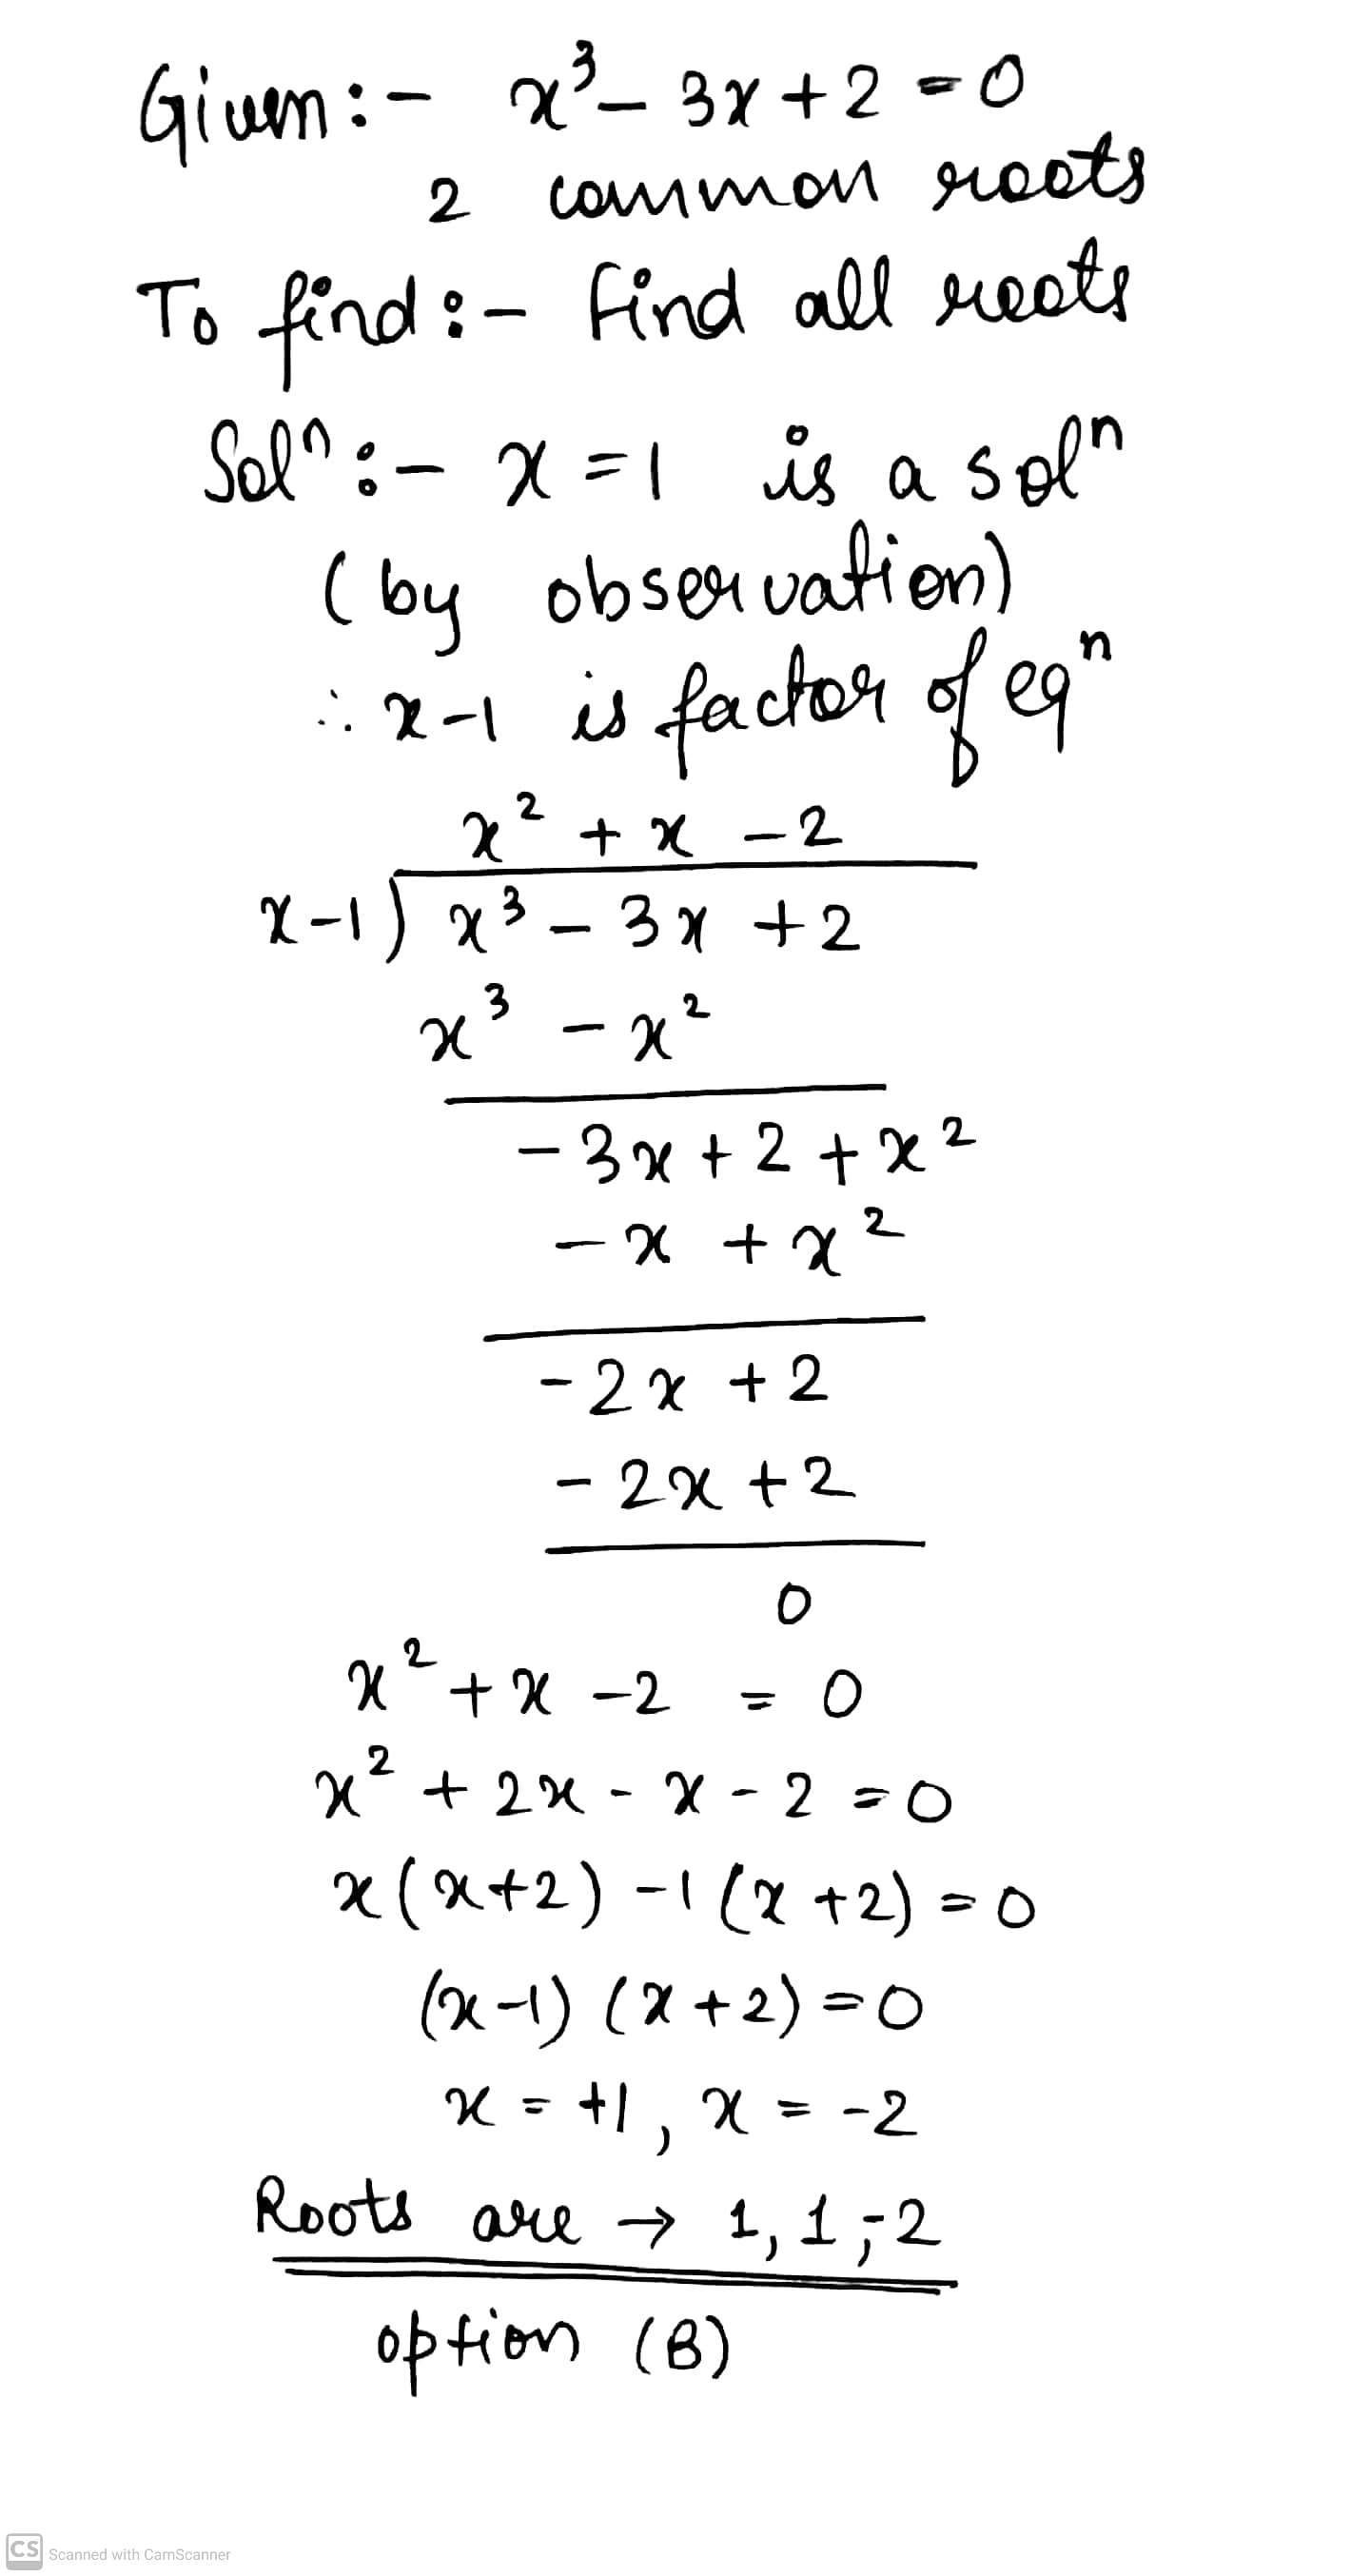 Given :- x³ - 3x + 2 = 0
2 common roots
To find :- find all roots
Solⁿ :- x = 1 is a solⁿ
(by observation)
∴ x-1 is factor of eqⁿ
x² + x - 2
x-1) x³ - 3x + 2
x³ - x²
-3x + 2 + x²
-x + x²
-2x + 2
-2x + 2
0
x² + x - 2 = 0
x² + 2x - x - 2 = 0
x(x+2) -1(x+2) = 0
(x-1)(x+2) = 0
x = +1, x = -2
Roots are → 1, 1, -2
option (B)
CS Scanned with CamScanner